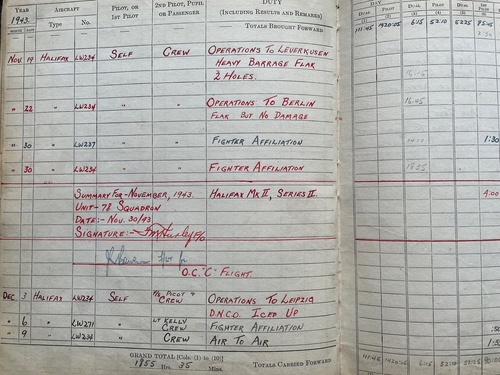 YEAR AIRCRAFT PILOT, OR 2ND PILOT, PUPIL DUTY DAY
1943. Type No. 1ST PILOT OR PASSENGER (INCLUDING RESULTS AND REMARKS) DUAL PILOT DUAL PILOT
TOTALS BROUGHT FORWARD 111:45 1420:05 6:15 52:10 52:25
NOV. 19 HALIFAX LW234 SELF CREW OPERATIONS TO LEVERKUSEN
HEAVY BARRAGE FLAK
2 HOLES.
" 22 " LW234 " " OPERATIONS TO BERLIN
FLAK BUT NO DAMAGE
" 30 " LW237 " " FIGHTER AFFILIATION 1:30
" 30 " LW234 " " FIGHTER AFFILIATION
SUMMARY FOR - NOVEMBER, 1943. HALIFAX MK II, SERIES II. 4:00
UNIT - 78 SQUADRON
DATE:- NOV. 30/43
SIGNATURE:-
O.C. "C" FLIGHT.
DEC. 3 HALIFAX LW234 SELF CREW OPERATIONS TO LEIPZIG
D.N.C.O. ICED UP
" 6 " LW271 " LT KELLY CREW FIGHTER AFFILIATION
" 9 " LW234 " CREW AIR TO AIR
GRAND TOTAL [Cols. (1) to (10)]
1855 Hrs. 35 Mins. TOTALS CARRIED FORWARD 111:45 1420:05 6:15 52:10 52:25